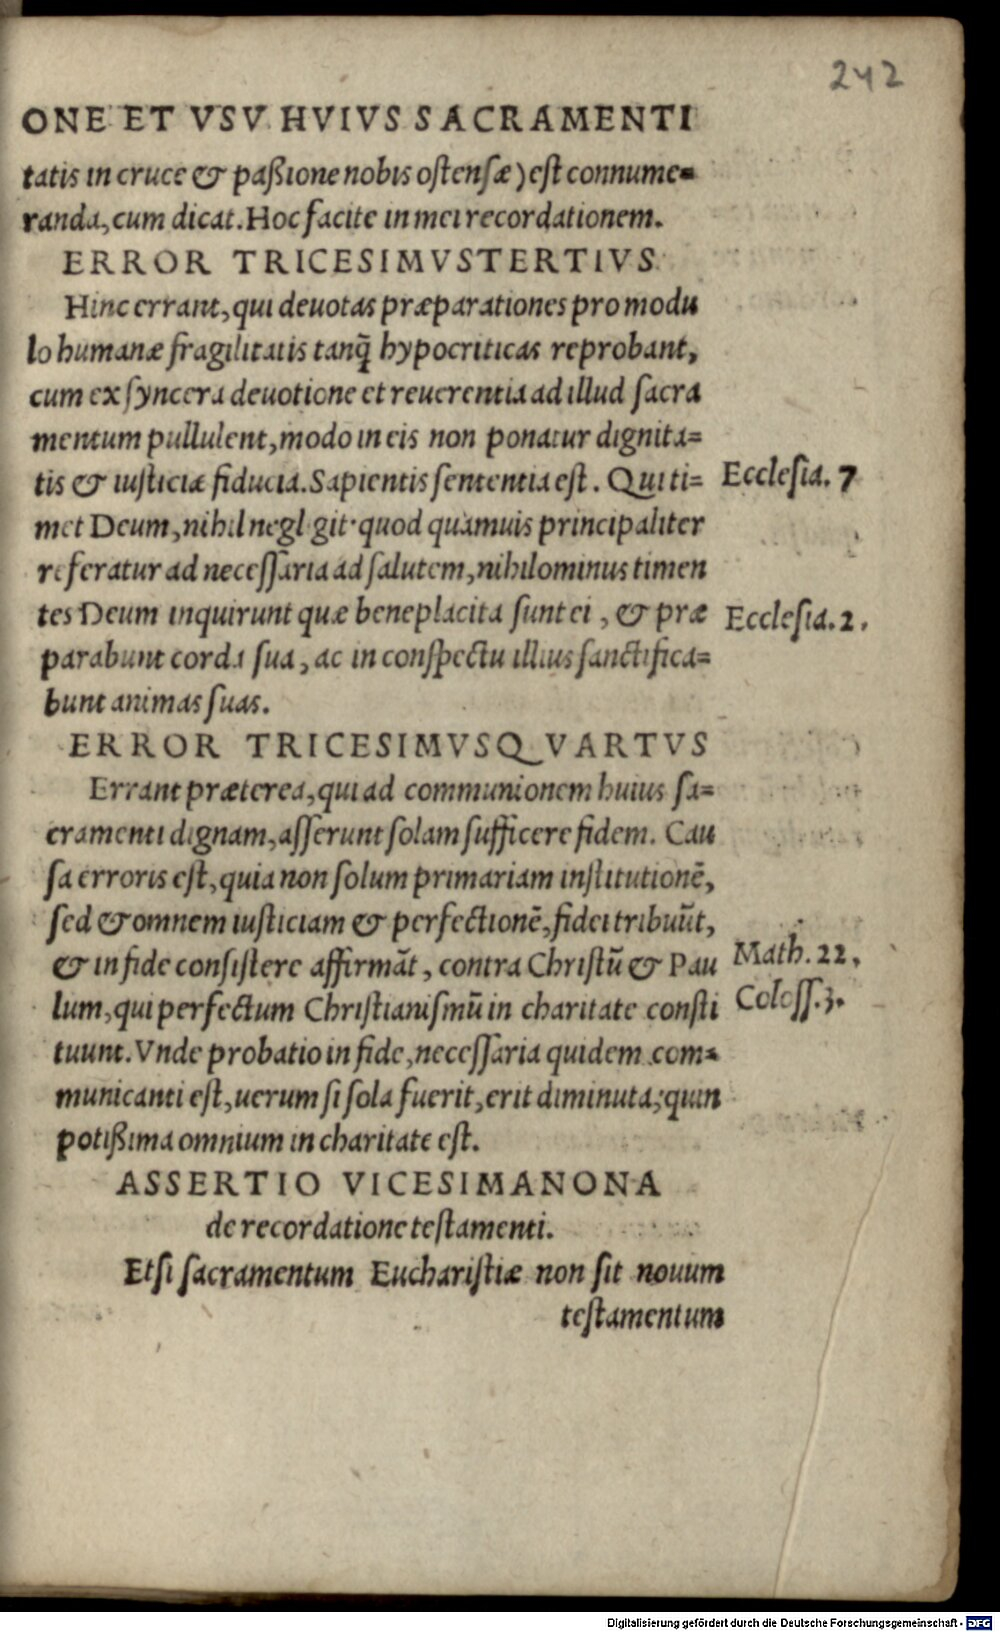 242
ONE ET VSV HVIVS SACRAMENTI
tatis in cruce & paßione nobis ostensæ) est connume=
randa, cum dicat. Hoc facite in mei recordationem.
ERROR TRICESIMVSTERTIVS
Hinc errant, qui deuotas præparationes pro modu
lo humanæ fragilitatis tanq̃ hypocriticas reprobant,
cum ex syncera deuotione et reuerentia ad illud sacra
mentum pullulent, modo in eis non ponatur dignita=
tis & iusticiæ fiducia. Sapientis sententia est. Qui ti= Ecclesia. 7
met Deum, nihil negl git· quod quamuis principaliter
referatur ad necessaria ad salutem, nihilominus timen
tes Deum inquirunt quæ beneplacita sunt ei, & præ Ecclesia. 2.
parabunt corda sua, ac in conspectu illius sanctifica=
bunt animas suas.
ERROR TRICESIMVSQVARTVS
Errant præterea, qui ad communionem huius sa=
cramenti dignam, asserunt solam sufficere fidem. Cau
sa erroris est, quia non solum primariam institutionẽ,
sed & omnem iusticiam & perfectionẽ, fidei tribuũt,
& in fide consistere affirmãt, contra Christũ & Pau Math. 22,
lum, qui perfectum Christianismũ in charitate consti Coloss. 3.
tuunt. Vnde probatio in fide, necessaria quidem com=
municanti est, uerum si sola fuerit, erit diminuta; quin
potißima omnium in charitate est.
ASSERTIO VICESIMANONA
de recordatione testamenti.
Etsi sacramentum Eucharistiæ non sit nouum
testamentum
Digitalisierung gefördert durch die Deutsche Forschungsgemeinschaft - DFG